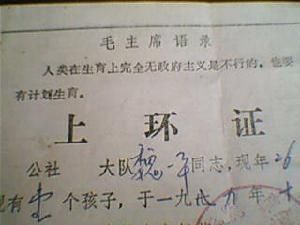 毛主席语录
人类在生育上完全无政府主义是不行的，也要
有计划生育。
上 环 证
公社 大队 同志，现年26
现有 个孩子，于一九 年